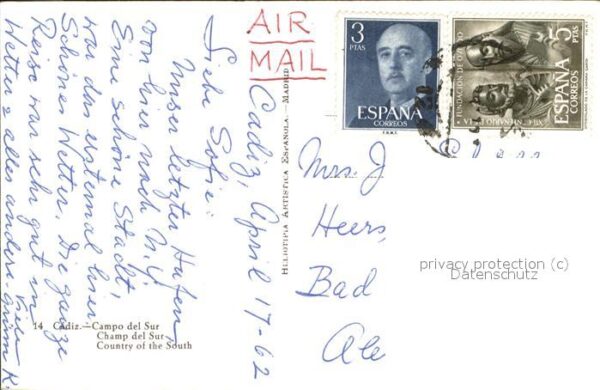 AIR
MAIL
3
PTAS
ESPAÑA
CORREOS
F.N.M.T.
5
PTAS
ESPAÑA
CORREOS
FUNDACION DE OVIEDO
Cadiz, April 17-62
Liebe Sofie:
Unser letzter Hafen
von hier nach N.Y.
Eine schöne Stadt,
war das erstemal hier.
Schönes Wetter. Die ganze
Reise war sehr gut in
Wetter & alles andere. Viele
Grüsse
HELIOTIPIA ARTISTICA ESPAÑOLA. — MADRID
Mrs. J
Heers,
Bad
privacy protection (c)
Datenschutz
14 Cádiz.—Campo del Sur
Champ del Sur
Country of the South